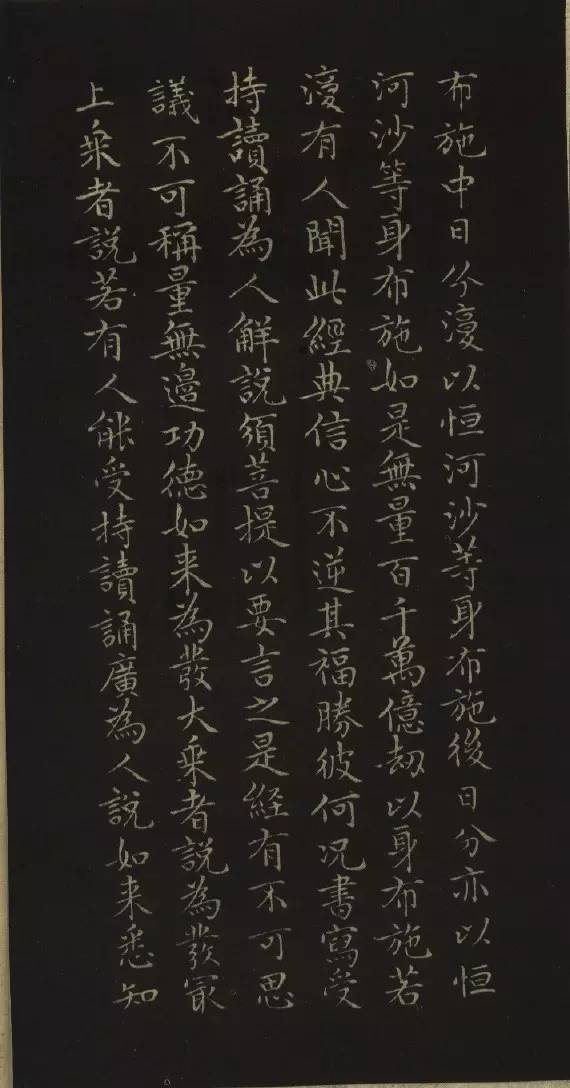 布施中日分濅以恒河沙等身布施後日分亦以恒
河沙等身布施如是無量百千萬億劫以身布施若
濅有人聞此經典信心不逆其福勝彼何況書寫受
持讀誦為人解說須菩提以要言之是經有不可思
議不可稱量無邊功德如来為發大乗者說為發冣
上乗者說若有人能受持讀誦廣為人說如来悉知